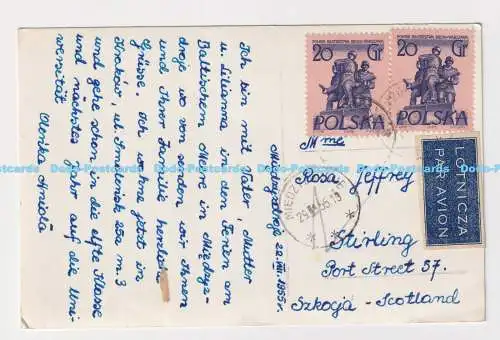 Międzyzdroje 22.VII.1955r.
Ich bin mit Vater, Mutter
u. Lilianna in den Ferien am
Baltischem Meere in Międzyz-
droje wo von senden wir Ihnen
und Ihrer Familie herzliche
Grüsse. Ich wohne jetzt in
Kraków, ul. 26a m. 3
und gehe schon in die elfte Klasse
und nächstes Jahr auf die Uni-
versität
POMNIK BRATERSTWA BRONI-WARSZAWA
20 Gr
POLSKA
POMNIK BRATERSTWA BRONI-WARSZAWA
20 Gr
POLSKA
LOTNICZA
PAR AVION
Mme
Rosa Jeffrey
Stirling
Port Street 37.
Szkocja - Scotland
Postcards